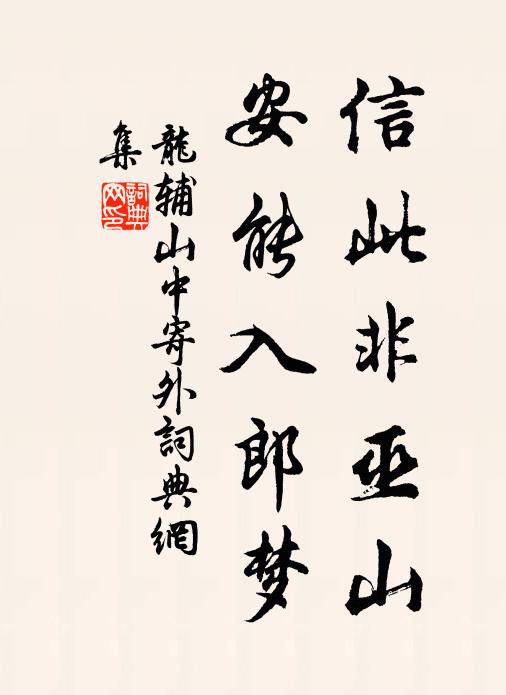 信此非巫山
安能入郎梦
龍辅山中寄外詞典網
集
詞典網印